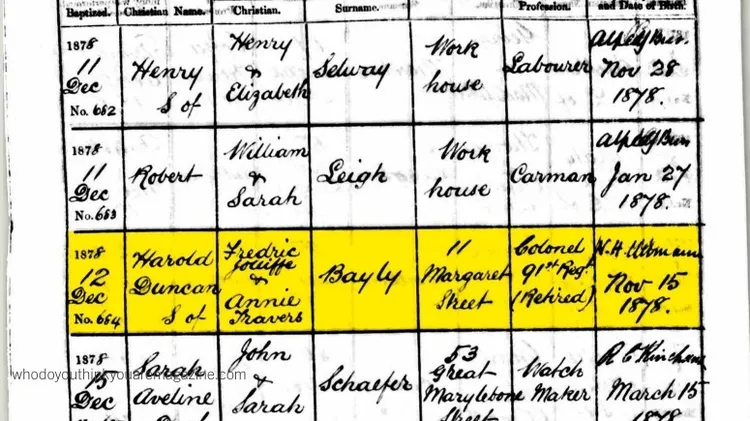 Baptized. Christian Name. Christian. Surname. Profession. and Date of Birth.
1878
11
Dec
No. 682
Henry
S of
Henry
&
Elizabeth
Selway
Work
house
Labourer
Nov 28
1878.
1878
11
Dec
No. 683
Robert
William
&
Sarah
Leigh
Work
house
Carman
Jan 27
1878.
1878
12
Dec
No. 684
Harold
Duncan
S of
Fredric
&
Annie
Travers
Bayly
11
Margaret
Street
Colonel
91st Regt
(Retired)
Nov 15
1878.
1878
15
Dec
Sarah
Aveline
John
&
Sarah
Schaefer
53
Great
Marylebone
Street
Watch
Maker
March 15
1878
whodoyouthinkyouaremagazine.com